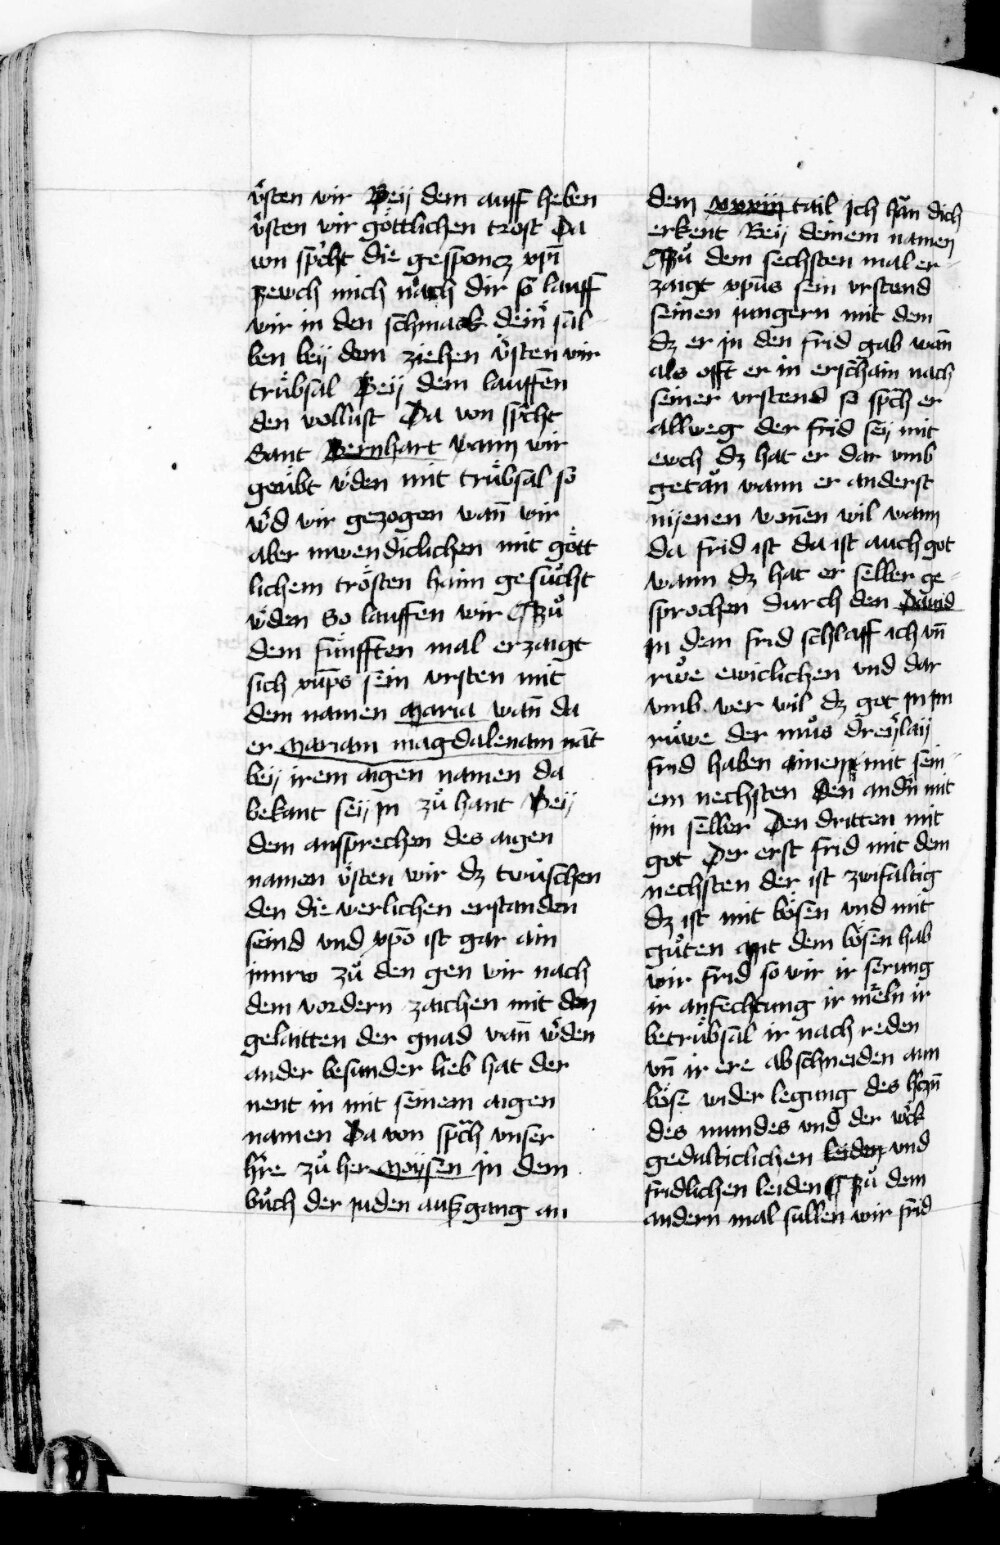 v̊sten wir Beÿ dem auff heben
v̊sten wir göttlichen trost Da
von spͬcht die gesponcz xp̄i
zewch mich nach dir so lauff
wir in den schmack deinͬ sal
ben beÿ dem ziehen v̊sten wir
trůbsal Beÿ dem lauffen
den wollust Da von spͬcht
Sant Bernhart wann wir
geůbt wͬden mit trůbsal so
wͬd wir gezogen wan̄ wir
aber inwendiclichen mit gött
lichem trösten haim gesůcht
wͬden So lauffen wir Zů
dem fünfften mal erzaigt
sich xp̄us sein vrsten mit
dem namen maria wan̄ da
er mariam magdalenam nāt
beÿ irem aigen namen da
bekant seÿ in zů hant Beÿ
dem ansprechen des aigen
namen v̊sten wir dz twüschen
den die werlichen erstanden
seind vnd xp̄o ist gar ain
innrw zů den gen wir nach
dem vordern zaichen mit den
gelaitten der gnad wan̄ wͬden
ander besunder lieb hat der
nent in mit seinem aigen
namen Da von spͬch vnser
hͬre zů her moÿsen in dem
bůch der juden auszgang an
dem xxxiij tail Ich han dich
erkent Beÿ deinem namen
Zů dem sechsten mal er
zaigt xp̄us sein vrstend
seinen jungern mit dem
dz er in den frid gab wan̄
als offt er in erschain nach
seiner vrstend so spͬch er
allweg der frid seÿ mit
ewch dz hat er dar vmb
getan wann er anderst
nÿenen wonen wil wann
da frid ist da ist auch got
wann dz hat er selber ge
sprochen durch den Dauid
in dem frid schlaff ich vn̄
růe ewiclichen vnd dar
vmb wer wil dz got in im
růwe der můs dreÿͬlaÿ
frid haben ainen mit sein
em nechsten Den andͬn mit
im selber Den dritten mit
got Der erst frid mit dem
nechsten der ist zwifaltig
dz ist mit bösen vnd mit
gůten mit dem bösen hab
wir frid so wir ir serung
ir anfechtung ir
betrůbsal ir nach reden
vn̄ ir ere abschneiden ann
böse wider legung des hͬczn̄
des mundes vnd der wͬck
gedulticlichen leiden vnd
fridlichen leiden Zů dem
andern mal sullen wir frid